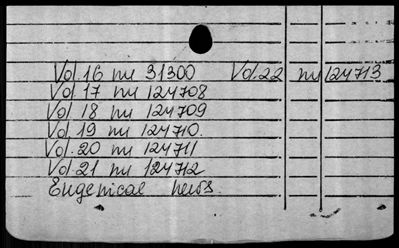 Vol. 16 nu 31300 Vol. 22 nu 124713
Vol. 17 nu 124708
Vol. 18 nu 124709
Vol. 19 nu 124710.
Vol. 20 nu 124711
Vol. 21 nu 124712
Eugenical news.